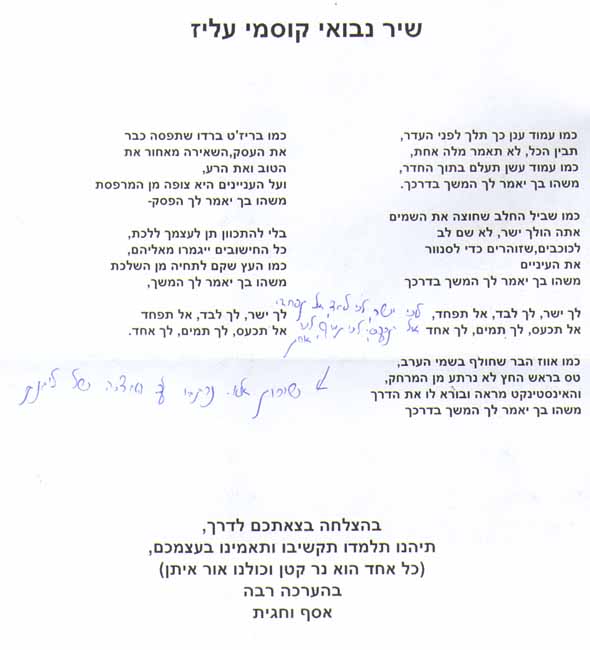 שיר נבואי קוסמי עליז
כמו עמוד ענן כך תלך לפני העדר,
תבין הכל, לא תאמר מלה אחת,
כמו עמוד עשן תעלם בתוך החדר,
משהו בך יאמר לך המשך בדרכך.
כמו שביל החלב שחוצה את השמים
אתה הולך ישר, לא שם לב
לכוכבים,שזוהרים כדי לסנוור
את העיניים
משהו בך יאמר לך המשך בדרכך
לך ישר, לך לבד, אל תפחד,
אל תכעס, לך תמים, לך אחד
כמו אווז הבר שחולף בשמי הערב,
טס בראש החץ לא נרתע מן המרחק,
והאינסטינקט מראה ובורא לו את הדרך
משהו בך יאמר לך המשך בדרכך
כמו בריז'ט ברדו שתפסה כבר
את העסק,השאירה מאחור את
הטוב ואת הרע,
ועל העניינים היא צופה מן המרפסת
משהו בך יאמר לך הפסק-
בלי להתכוון תן לעצמך ללכת,
כל החישובים ייגמרו מאליהם,
כמו העץ שקם לתחיה מן השלכת
משהו בך יאמר לך המשך,
לך ישר, לך לבד, אל תפחד
אל תכעס, לך תמים, לך אחד.
לכי ישר, לכי לבד, אל תפחדי
אל תכעסי, לכי לכי
אחת
שירות של
בהצלחה בצאתכם לדרך,
תיהנו תלמדו תקשיבו ותאמינו בעצמכם,
(כל אחד הוא נר קטן וכולנו אור איתן)
בהערכה רבה
אסף וחגית